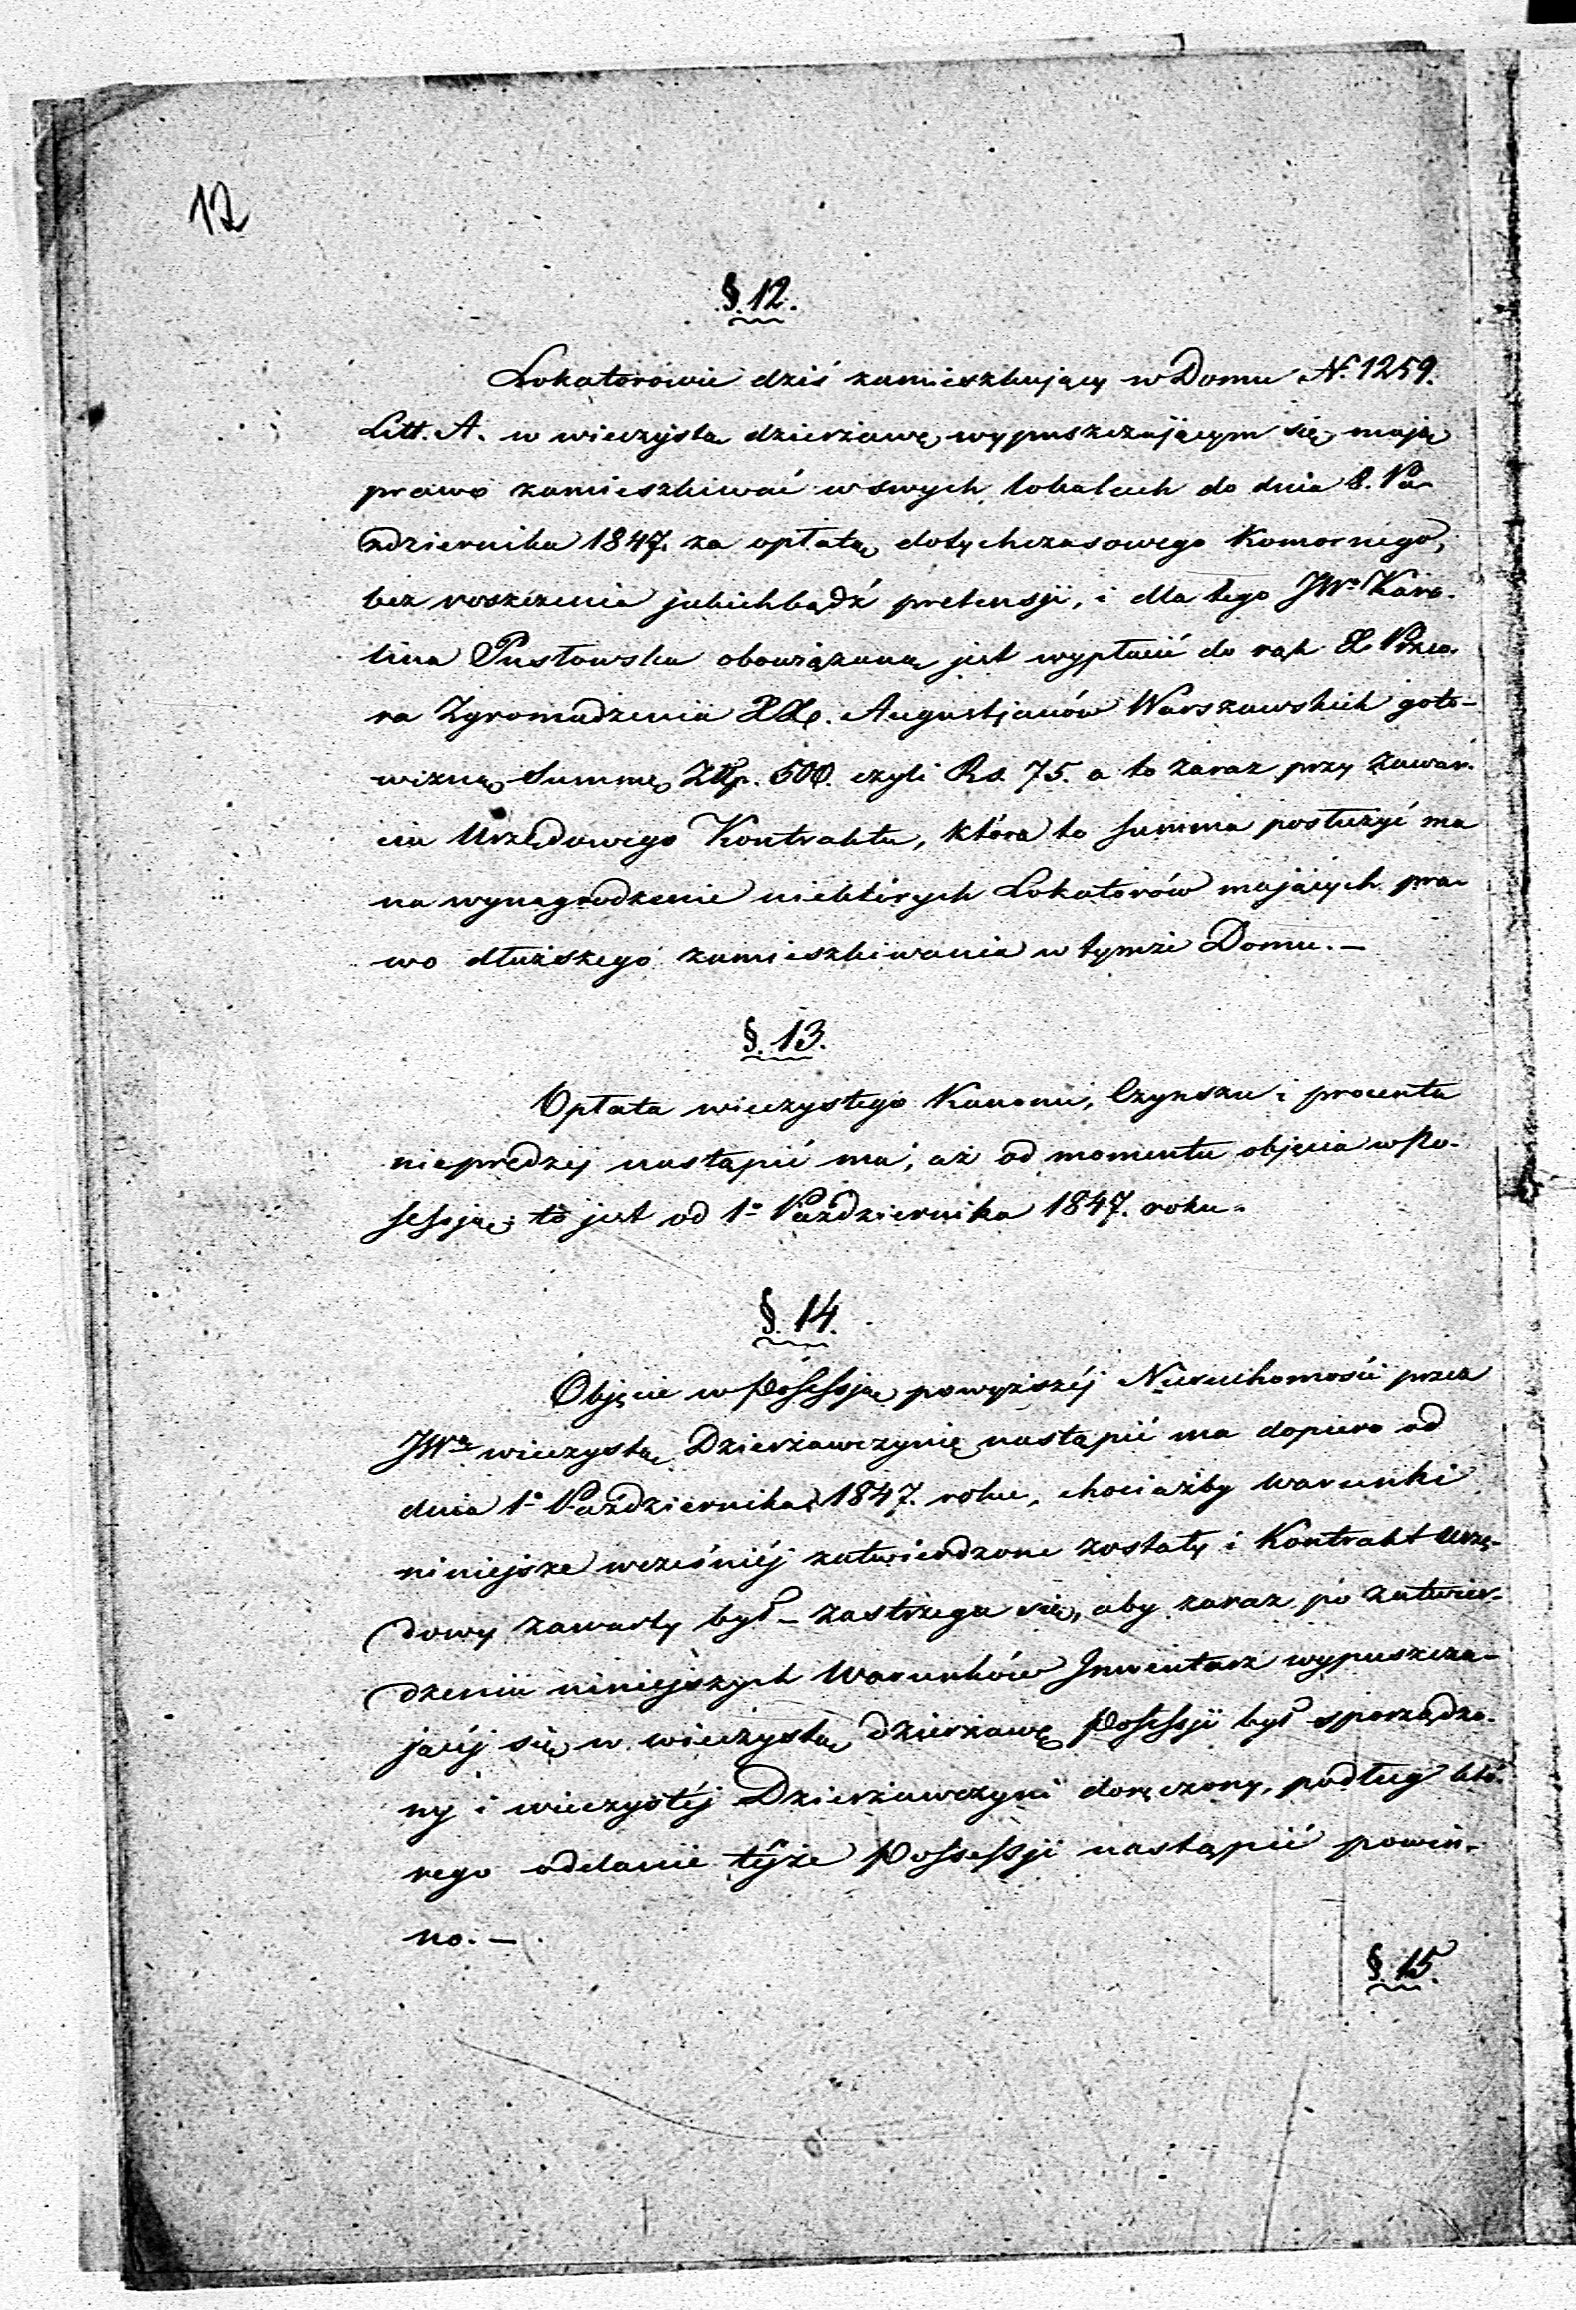 12
§. 12.
Lokatorowie dziś zamieszkujący w Domu N. 1259.
Litt. A. w wieczystą dzierżawę wypuszczającym się, mają
prawo zamieszkiwać w swych lokalach do dnia 8. Pa-
zdziernika 1847. za opłatą dotychczasowego Komornego,
bez roszczenia jakichbądź pretensji, i dla tego JWa Karo-
lina Pusłowska obowiązaną jest wypłacić do rąk X. Przeo-
ra Zgromadzenia XX. Augustjanów Warszawskich goto-
wizną Summę Złłp. 500. czyli Rs. 75. a to zaraz przy zawar-
ciu Urzędowego Kontraktu, która to summa posłużyć ma
na wynagrodzenie niektórych Lokatorów mających pra-
wo dłuższego zamieszkiwania w tymże Domu. —
§. 13.
Opłata wieczystego Kanonu, Czynszu i procentu
nieprędzej nastąpić ma, aż od momentu objęcia w Po-
sessją; to jest od 1o Października 1847. roku.
§. 14.
Objęcie w Possessją powyższéj Nieruchomości przez
JWą wieczystą Dzierżawczynię nastąpić ma dopiero od
dnia 1o Października 1847. roku, chociażby warunki
niniejsze wcześniéj zatwierdzone zostały i Kontrakt Urzę-
dowy zawarty był — zastrzega się, aby zaraz po zatwier-
dzeniu niniejszych Warunków Inwentarz wypuszcza-
jącéj się w wieczystą dzierżawę Possessji był sporządzo-
ny i wieczystéj Dzierżawczyni doręczony, podług któ-
rego oddanie téjże Possessji nastąpić powin-
no. —
§. 15.